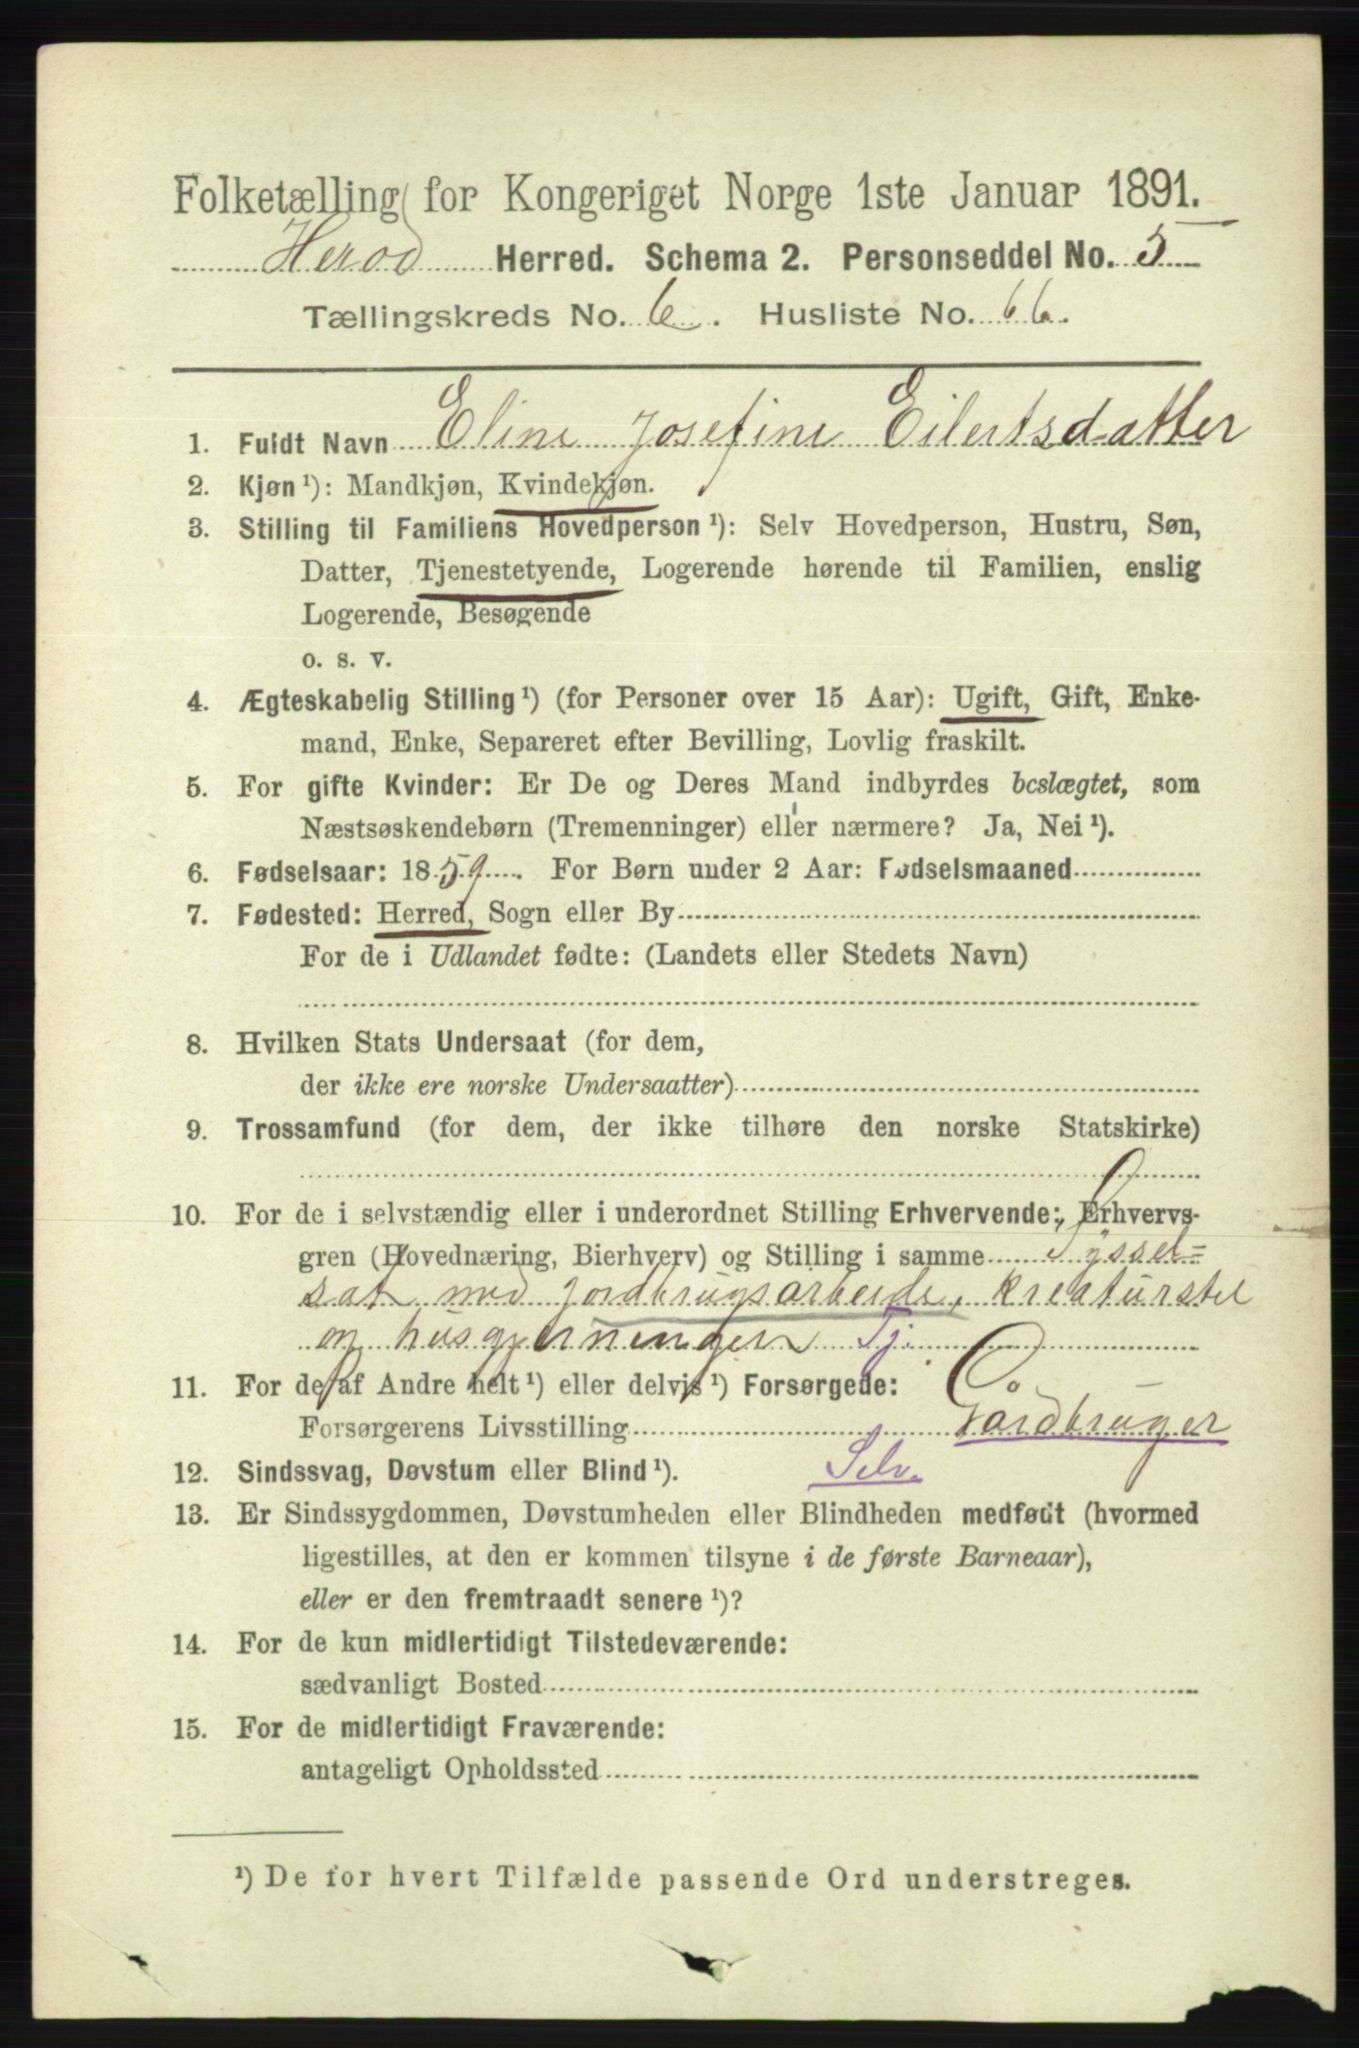 Folketælling for Kongeriget Norge 1ste Januar 1891.
Herød Herred. Schema 2. Personseddel No. 5
Tællingskreds No. 6. Husliste No. 66.
1. Fuldt Navn Eline Josefine Eilertsdatter
2. Kjøn ¹): Mandkjøn, Kvindekjøn.
3. Stilling til Familiens Hovedperson ¹): Selv Hovedperson, Hustru, Søn,
Datter, Tjenestetyende, Logerende hørende til Familien, enslig
Logerende, Besøgende
o. s. v.
4. Ægteskabelig Stilling ¹) (for Personer over 15 Aar): Ugift, Gift, Enke-
mand, Enke, Separeret efter Bevilling, Lovlig fraskilt.
5. For gifte Kvinder: Er De og Deres Mand indbyrdes beslægtet, som
Næstsøskendebørn (Tremenninger) eller nærmere? Ja, Nei ¹).
6. Fødselsaar: 1859. For Børn under 2 Aar: Fødselsmaaned
7. Fødested: Herred, Sogn eller By
For de i Udlandet fødte: (Landets eller Stedets Navn)
8. Hvilken Stats Undersaat (for dem,
der ikke ere norske Undersaatter)
9. Trossamfund (for dem, der ikke tilhøre den norske Statskirke)
10. For de i selvstændig eller i underordnet Stilling Erhvervende: Erhvervs-
gren (Hovednæring, Bierhverv) og Stilling i samme Syssel=
sat med jordbrugsarbeide, kreaturstel
og husgjerninger Tj.
11. For de af Andre helt ¹) eller delvis ¹) Forsørgede:
Forsørgerens Livsstilling Gårdbruger
12. Sindssvag, Døvstum eller Blind ¹). Selv.
13. Er Sindssygdommen, Døvstumheden eller Blindheden medfødt (hvormed
ligestilles, at den er kommen tilsyne i de første Barneaar),
eller er den fremtraadt senere ¹)?
14. For de kun midlertidigt Tilstedeværende:
sædvanligt Bosted
15. For de midlertidigt Fraværende:
antageligt Opholdssted
¹) De for hvert Tilfælde passende Ord understreges.